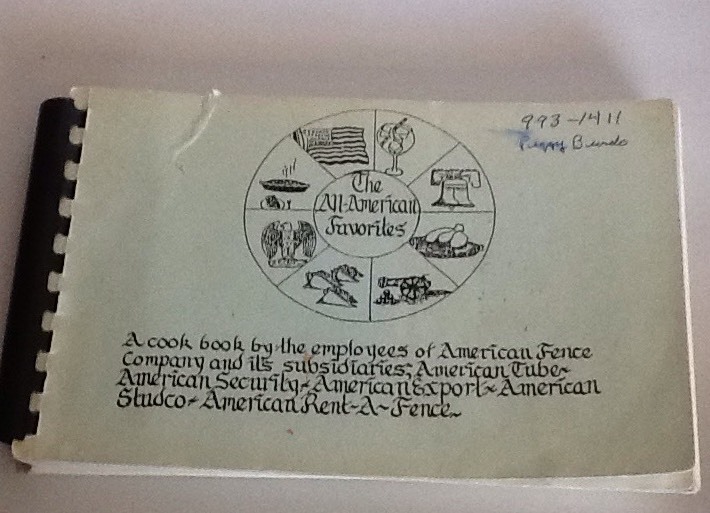 993-1411
Peggy
The
All-American
Favorites
A cook book by the employees of American Fence
Company and its subsidiaries; American Tube~
American Security~American Export~American
Studco~American Rent-A-Fence~